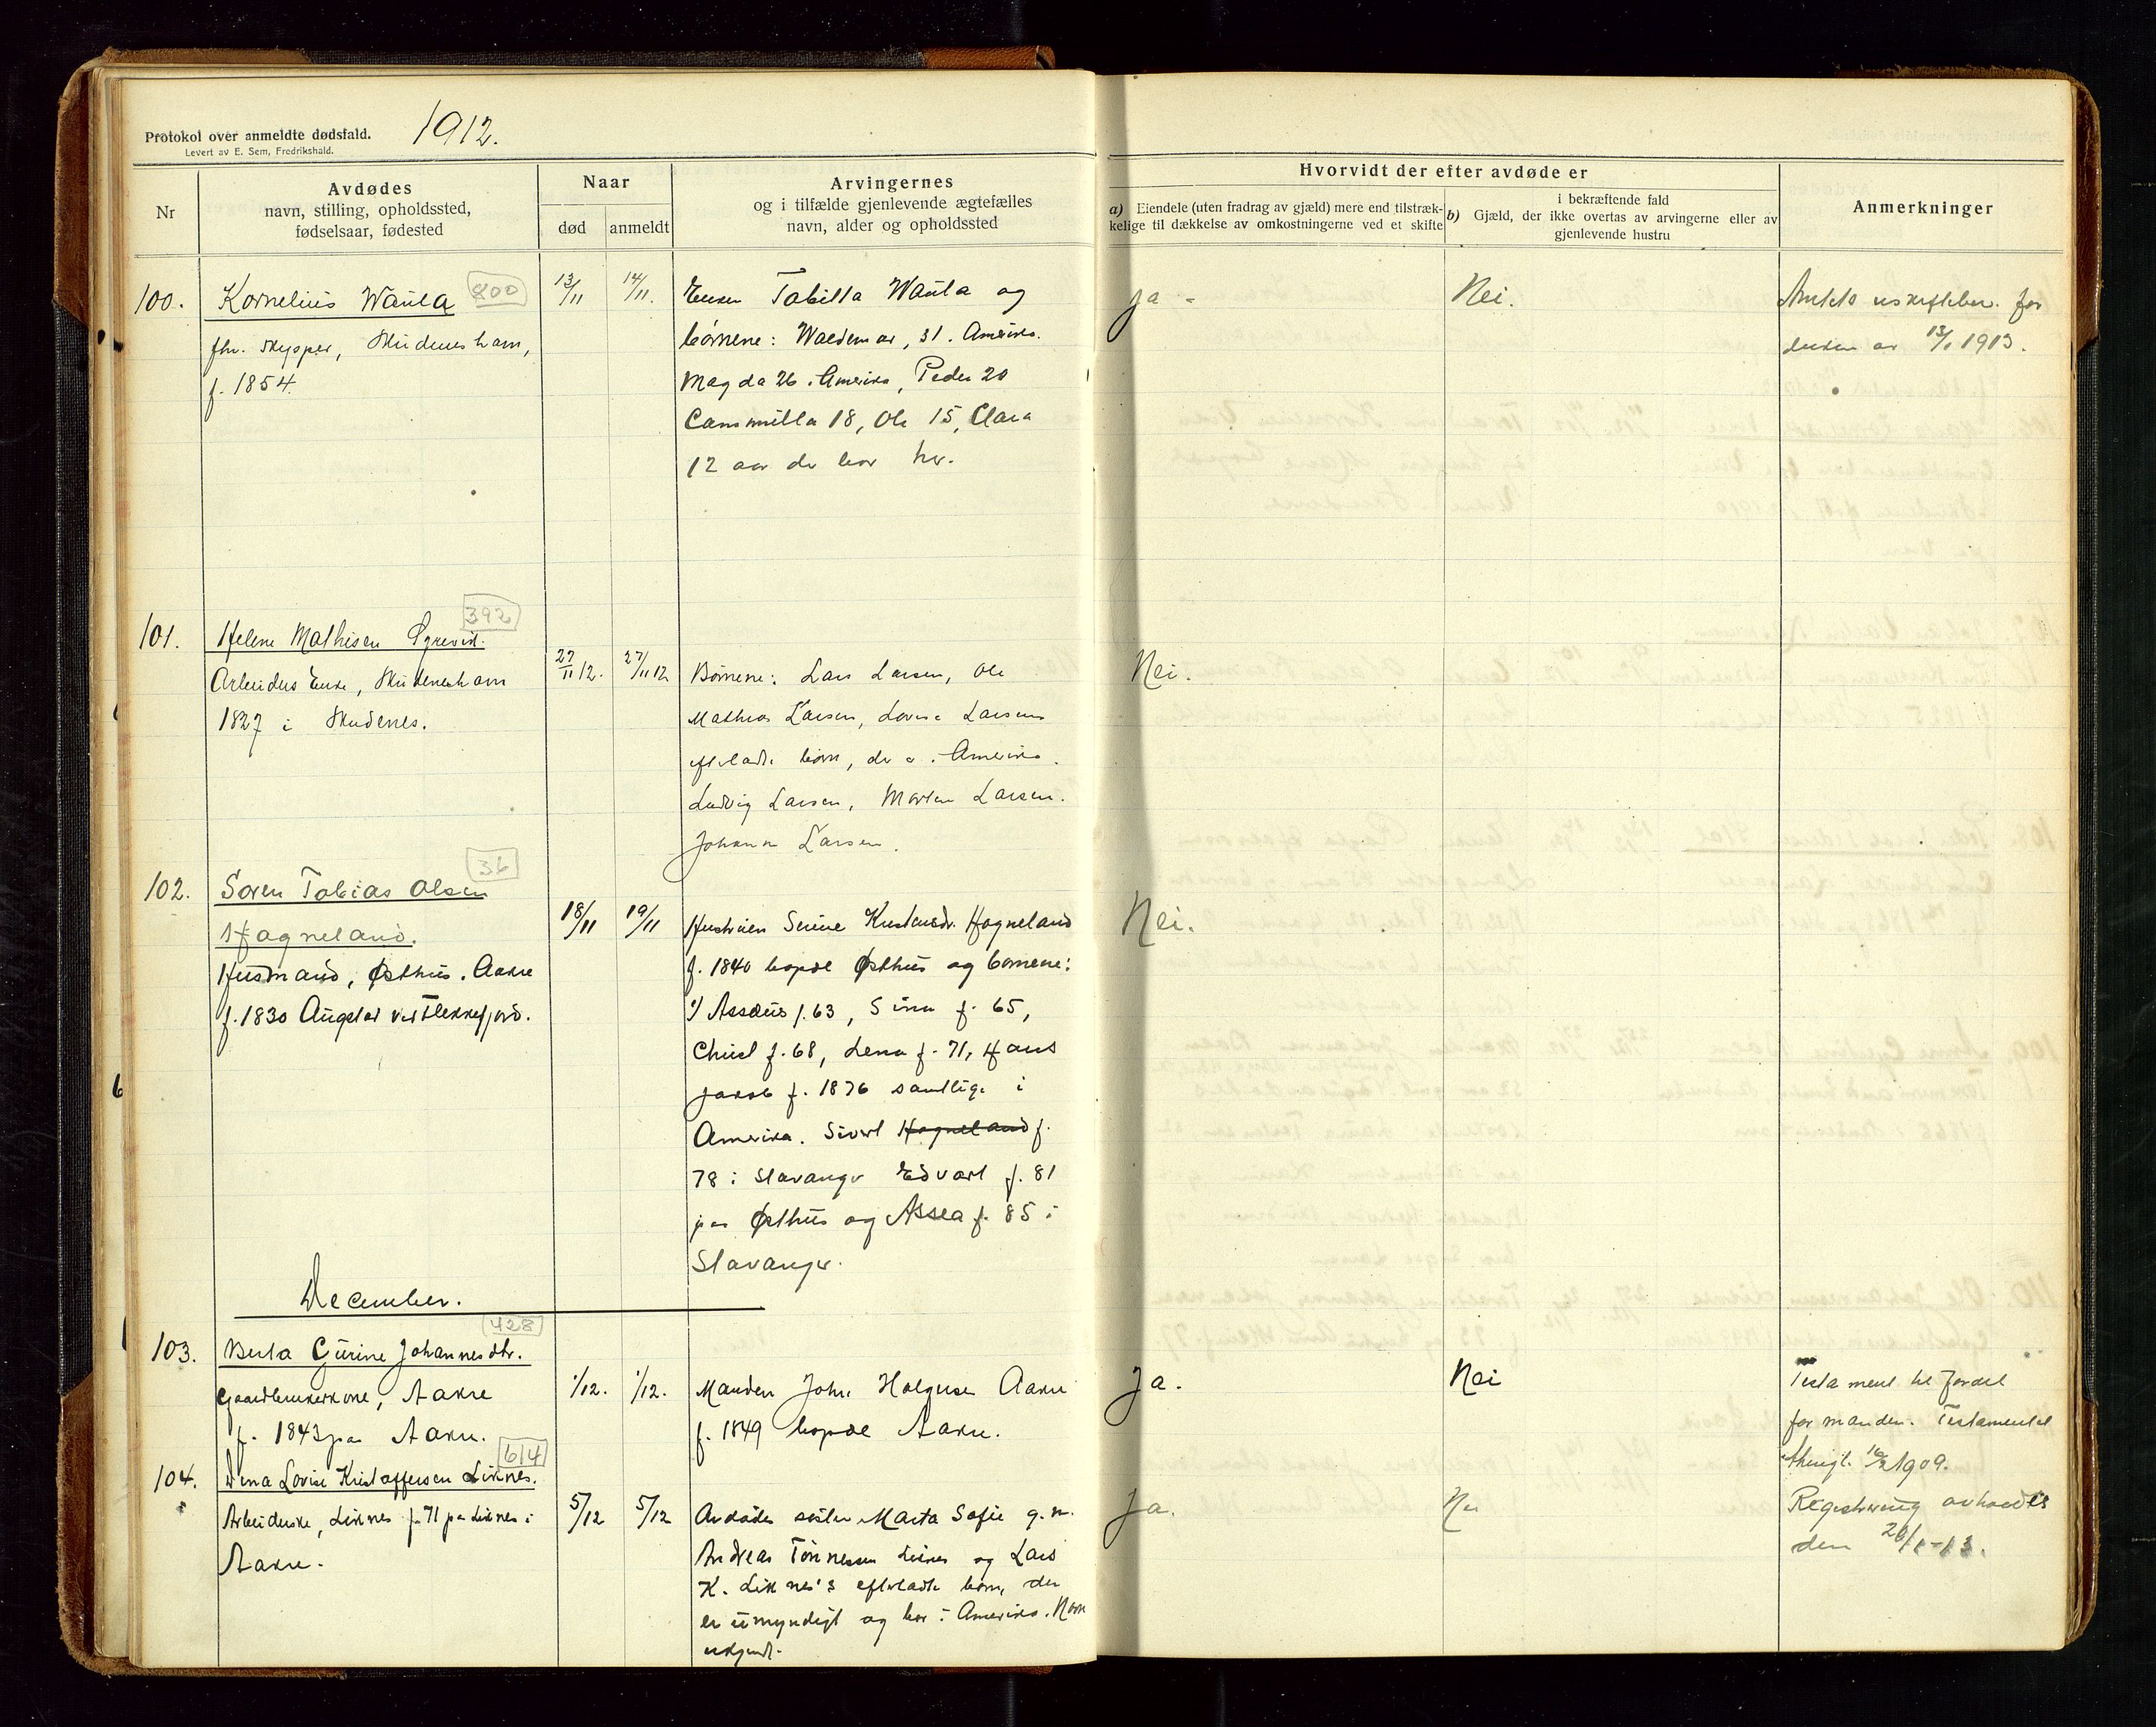 Protokol over anmeldte dødsfald.
Levert av E. Sem, Fredrikshald.
1912.
Nr
Avdødes
navn, stilling, opholdssted,
fødselsaar, fødested
Naar
død
anmeldt
Arvingernes
og i tilfælde gjenlevende ægtefælles
navn, alder og opholdssted
Hvorvidt der efter avdøde er
a) Eiendele (uten fradrag av gjæld) mere end tilstræk-
kelige til dækkelse av omkostningerne ved et skifte
b) i bekræftende fald
Gjæld, der ikke overtas av arvingerne eller av
gjenlevende hustru
Anmerkninger
100.
Kornelius Waula
800
fhv. Skypper, Skudeneshavn,
f. 1854.
13/11
14/11.
Enken Tabitta Waula og
børnene: Waldemar, 31. Amerika.
Magda 26 i Amerika, Peder 20
Cammilla 18, Ole 15, Clara
12 aar der bor her.
Ja -
Nei.
Amtets uskiftebev. for
enken av 13/1 1913.
101.
392
Helene Mathisen
Arbeiders Enke, Skudeneshavn
1827 i Skudenes.
27/11 12.
27/11 12
Børnene: Lars Larsen, Ole
Mathias Larsen, Lovise Larsens
efterladte børn, der er i Amerika.
Ludvig Larsen, Morten Larsen.
Johanna Larsen.
Nei.
102.
36
Søren Tobias Olsen
Hagneland.
Husmand, Østhus. Aakre
f. 1830 ved Flekkefjord.
18/11
19/11
Hustruen Serine Kristensdr. Hagneland
f. 1840 bopæl Østhus og børnene:
Assæus f. 63, Sina f. 65,
Christ f. 68, Lena f. 71, Hans
Jakob f. 1876 samtlige i
Amerika. Sivert Hagneland f.
78 i Stavanger Edvart f. 81
paa Østhus og Assea f. 85 i
Stavanger.
Nei.
December.
103.
428
Berta Gurine Johannesdtr.
Gaardbrukerkone, Aakre
f. 1843 paa Aakre.
1/12.
1/12.
Manden John Holgersen Aakre
f. 1849 bopæl Aakre.
Ja.
Nei
Testament til fordel
for manden. Testamentet
thingl. 1909.
104.
614
Dina Lovise Kristoffersen Liknes.
Arbeiderske, Liknes f. 71 paa Liknes i
Aakre.
5/12
5/12
Avdødes søster Marta Sofie g. m.
Andreas Tønnessen Liknes og Lars
K. Liknes's efterladte børn, der
er umyndige og bor i Amerika. Navn
ukjendt.
Ja.
Nei
Registrering avholdes
den 20/1-13.